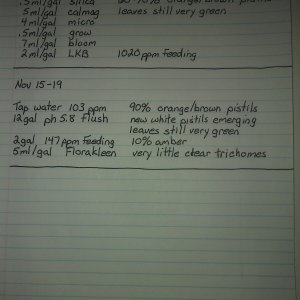 .5ml/gal silica
5ml/gal calmag leaves still very green
4ml/gal micro
.5ml/gal grow
7ml/gal bloom
2ml/gal LKB 1020 ppm feeding
Nov 15-19
Tap water 103 ppm 90% orange/brown pistils
12gal ph 5.8 flush new white pistils emerging
leaves still very green
2gal 147 ppm feeding 10% amber
5ml/gal Florakleen very little clear trichomes